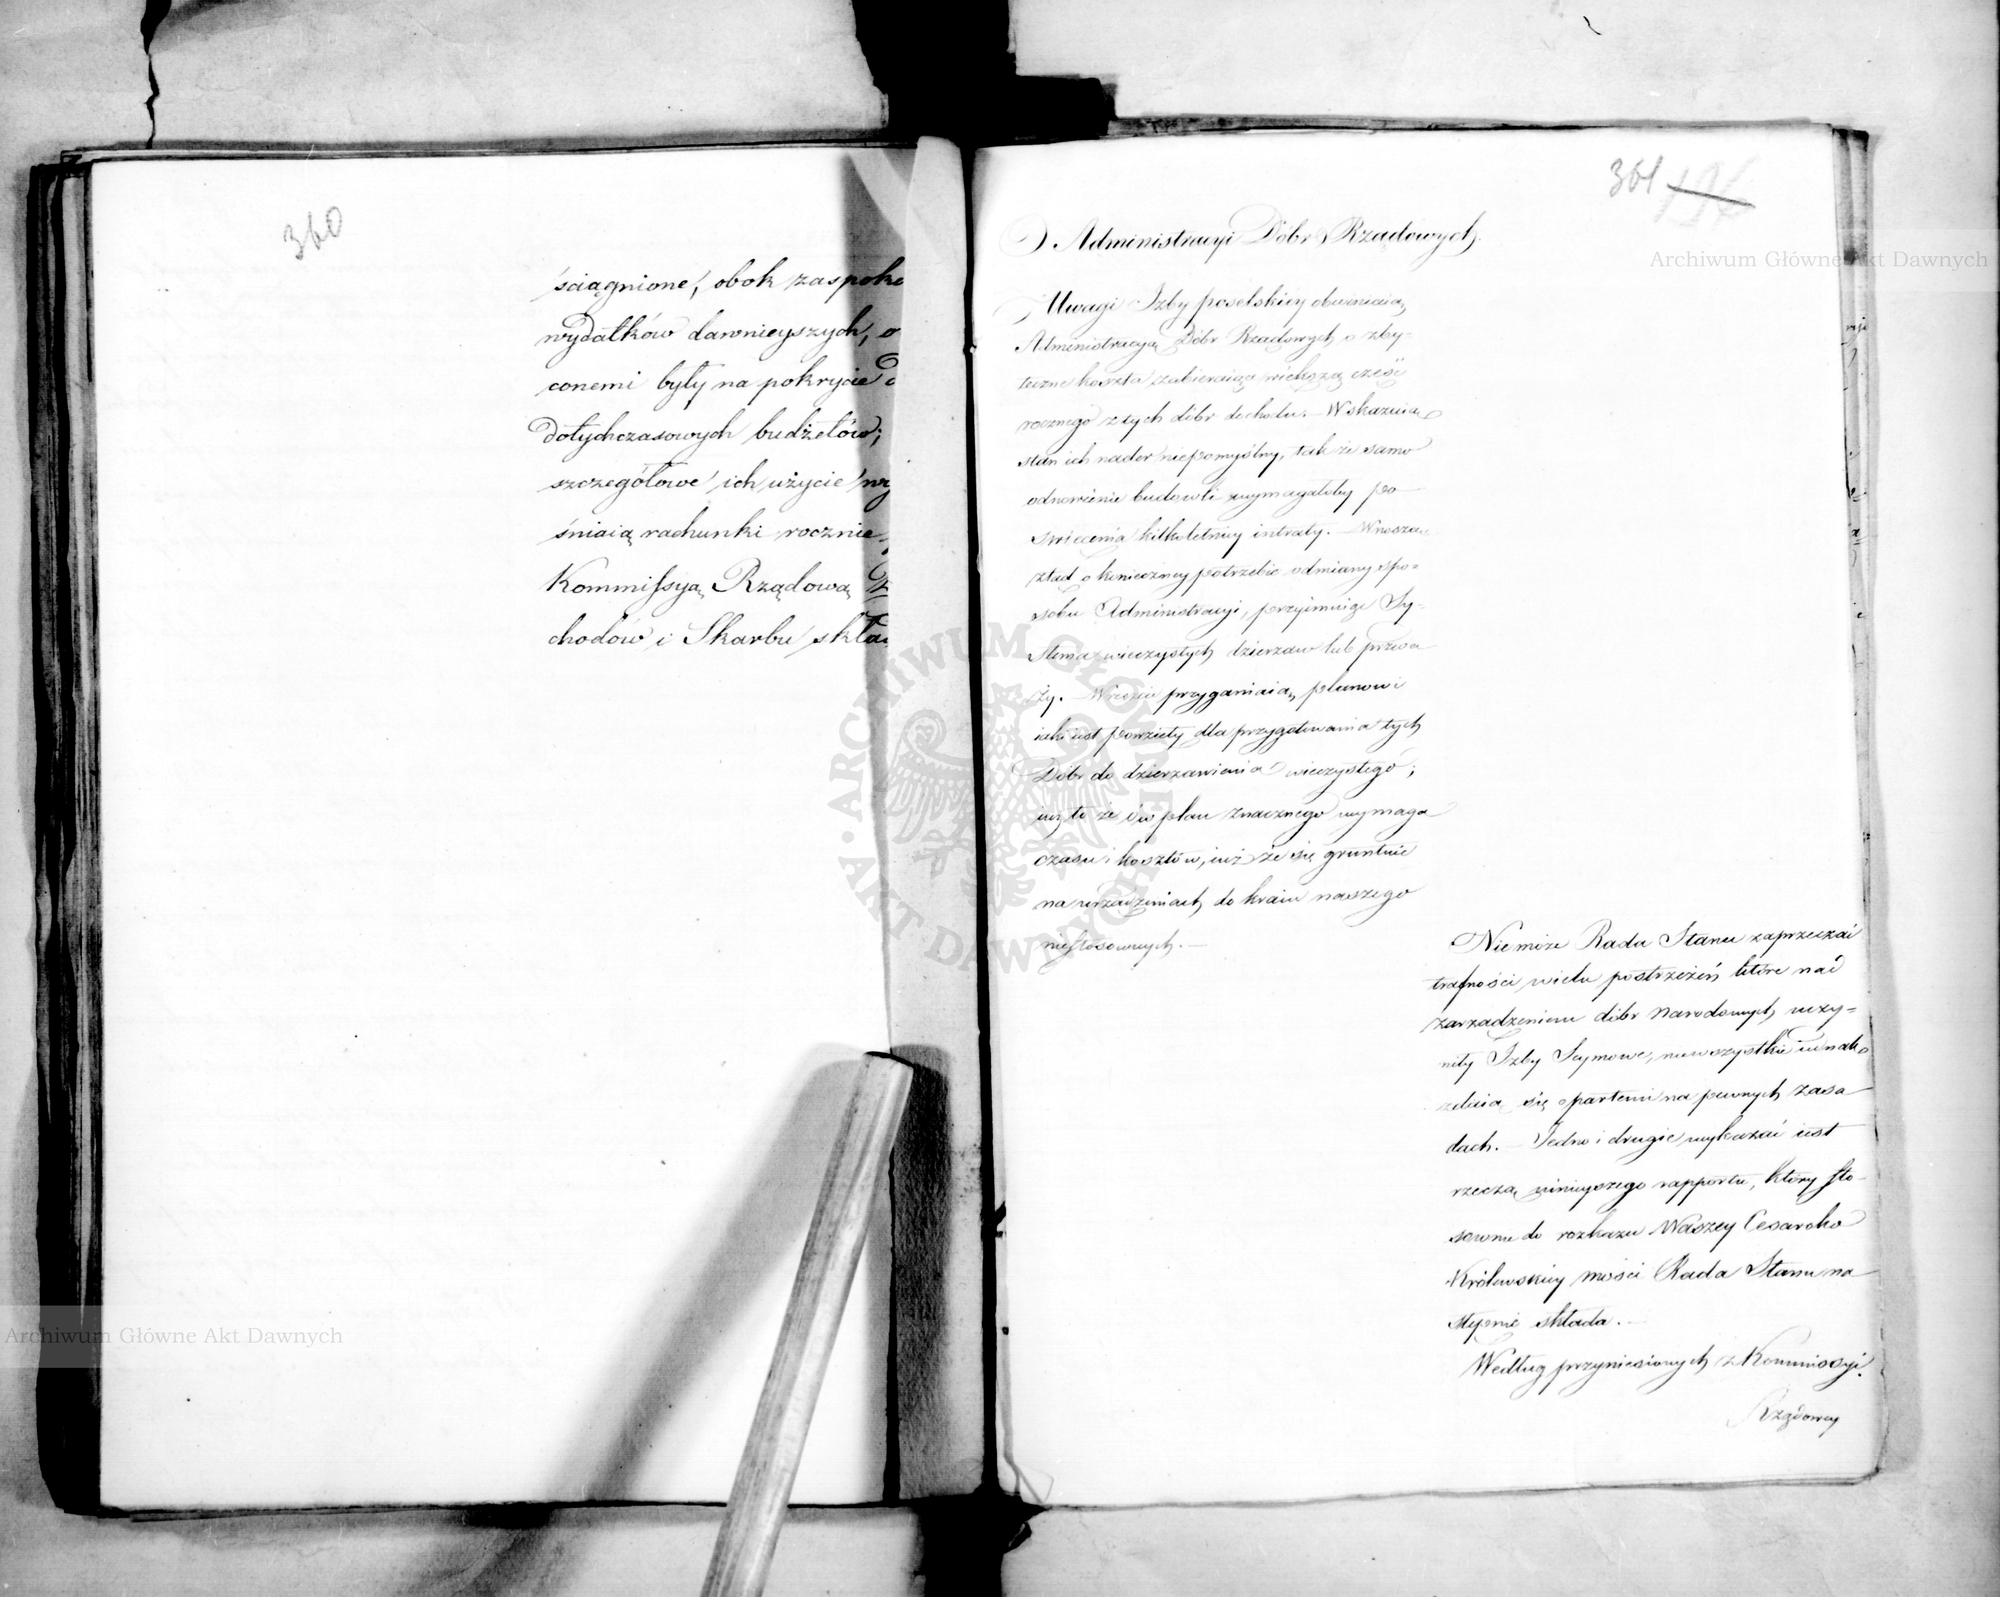 360
ściągnione, obok zaspoko
wydatków dawnieyszych, o
conemi były na pokrycie
dotychczasowych budżetów;
szczegółowe ich użycie wy
śniaią rachunki rocznie
Kommissyą Rządową
chodów i Skarbu skła
361 196
O Administracyi Dóbr Rządowych.
Uwagi Izby poselskiey obwiniaią
Administracyą Dóbr Rządowych o zby-
teczne koszta zabieraiące większą część
rocznego z tych dóbr dochodu. — Wskazuią
stan ich nader niepomyślny, tak że samo
odnowienie budowli wymagałoby po-
święcenia kilkoletniey intraty. — Wnosząc
ztąd o konieczney potrzebie odmiany spo-
sobu Administracyi, przyimuią Sy-
stema wieczystych dzierzaw lub przeda
ży. — Wreście przyganiaią planowi
iaki iest powzięty dla przygotowania tych
Dóbr do dzierzawienia wieczystego;
iuż to że ów plan znacznego wymaga
czasu i kosztów, iuż że się gruntuie
na urządzeniach do kraiu naszego
niestosownych. —
Nie może Rada Stanu zaprzeczać
trafności wielu postrzeżeń które nad
zarządzeniem dóbr Narodowych uczy-
niły Izby Seymowe, niewszystkie iednak
zdaią się opartemi na pewnych zasa
dach. — Jedno i drugie wykazać iest
rzeczą ninieyszego rapportu, który sto-
sownie do rozkazu Waszey Cesarsko
Królewskiey Mości Rada Stanu na
stępnie składa. —
Według przyniesionych z Kommissyi
Rządowey
Archiwum Główne Akt Dawnych
Archiwum Główne Akt Dawnych
ARCHIWUM GŁÓWNE AKT DAWNYCH